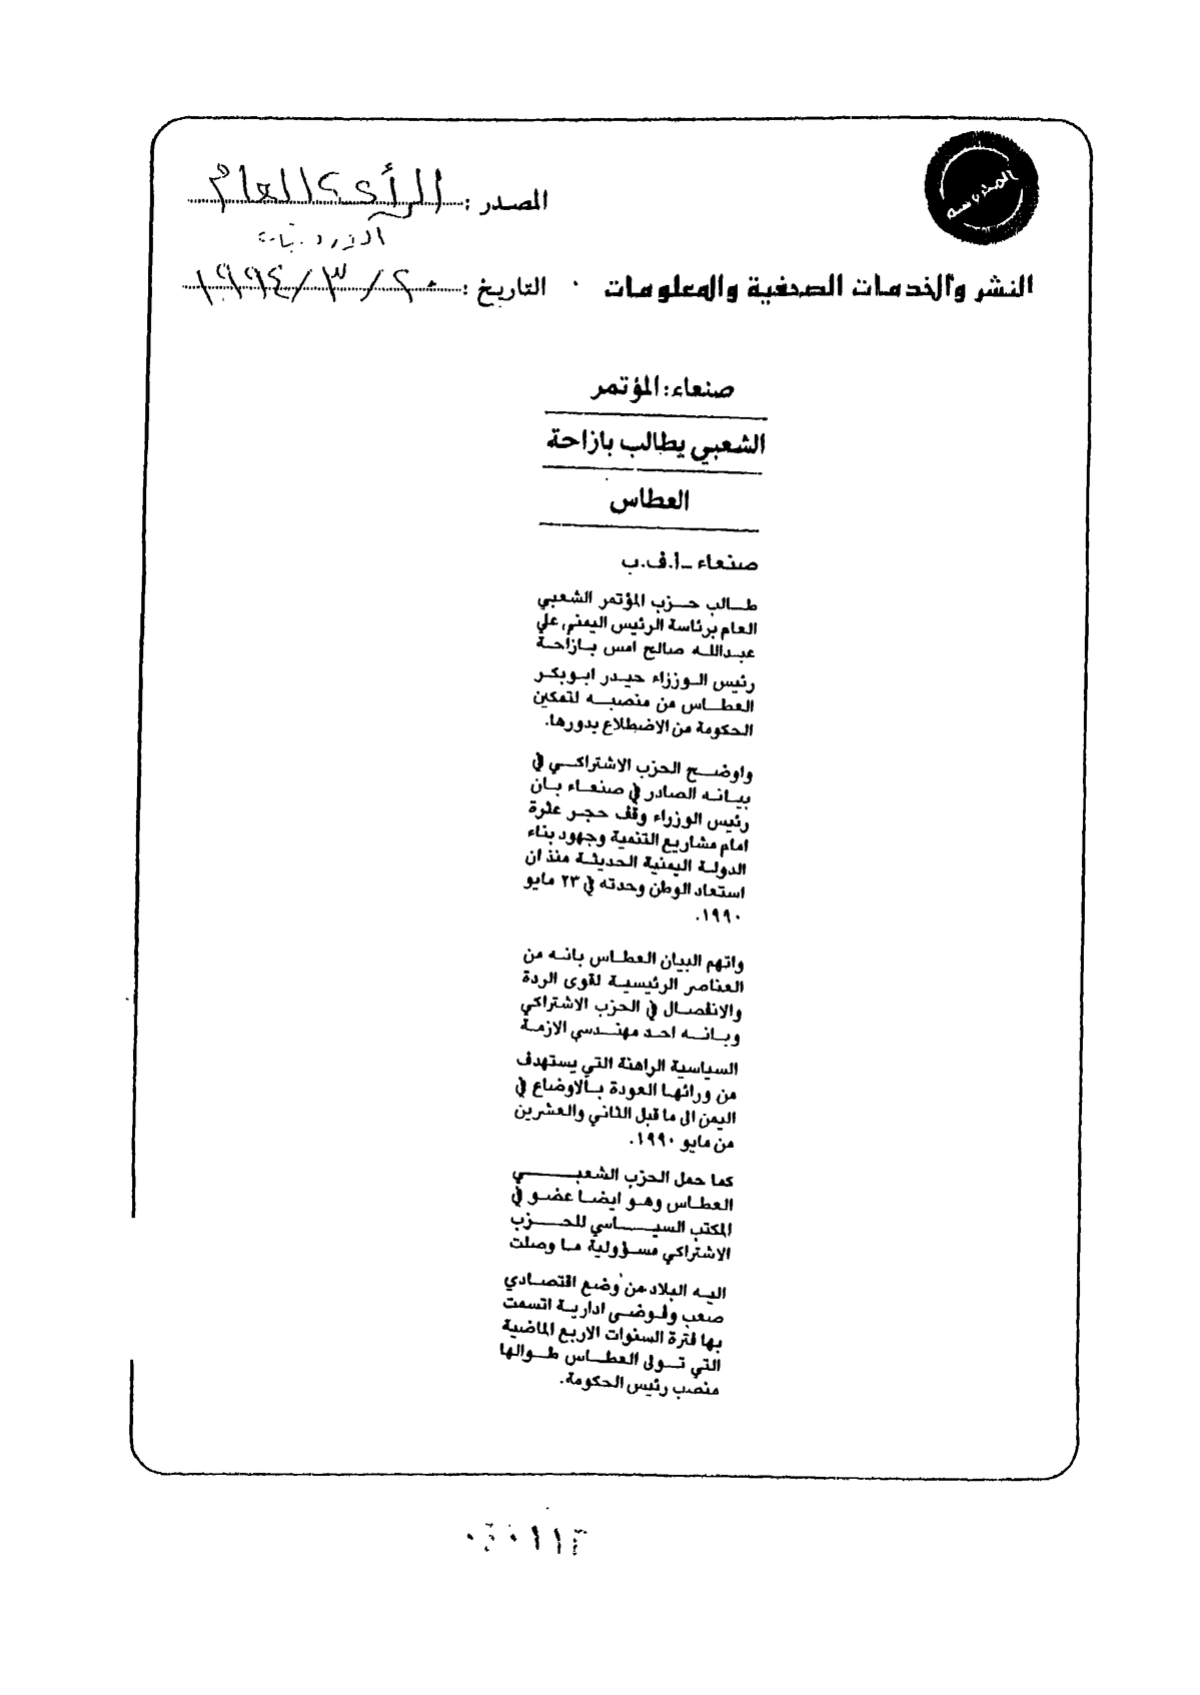 المصدر : الرأي العام
التاريخ : ٢٠/٣/١٩٩٤
النشر والخدمات الصحفية والمعلومات
صنعاء: المؤتمر
الشعبي يطالب بازاحة
العطاس
صنعاء ـ أ.ف.ب
طالب حزب المؤتمر الشعبي
العام برئاسة الرئيس اليمني علي
عبدالله صالح امس بازاحة
رئيس الوزراء حيدر ابوبكر
العطاس من منصبه لتمكين
الحكومة من الاضطلاع بدورها.
واوضح الحزب الاشتراكي في
بيانه الصادر في صنعاء بان
رئيس الوزراء وقف حجر عثرة
امام مشاريع التنمية وجهود بناء
الدولة اليمنية الحديثة منذ ان
استعاد الوطن وحدته في ٢٣ مايو
١٩٩٠.
واتهم البيان العطاس بانه من
العناصر الرئيسية لقوى الردة
والانفصال في الحزب الاشتراكي
وبانه احد مهندسي الازمة
السياسية الراهنة التي يستهدف
من ورائها العودة بالاوضاع في
اليمن الى ما قبل الثاني والعشرين
من مايو ١٩٩٠.
كما حمل الحزب الشعبي
العطاس وهو ايضا عضو في
المكتب السياسي للحزب
الاشتراكي مسؤولية ما وصلت
اليه البلاد من وضع اقتصادي
صعب وفوضى ادارية اتسمت
بها فترة السنوات الاربع الماضية
التي تولى العطاس طوالها
منصب رئيس الحكومة.